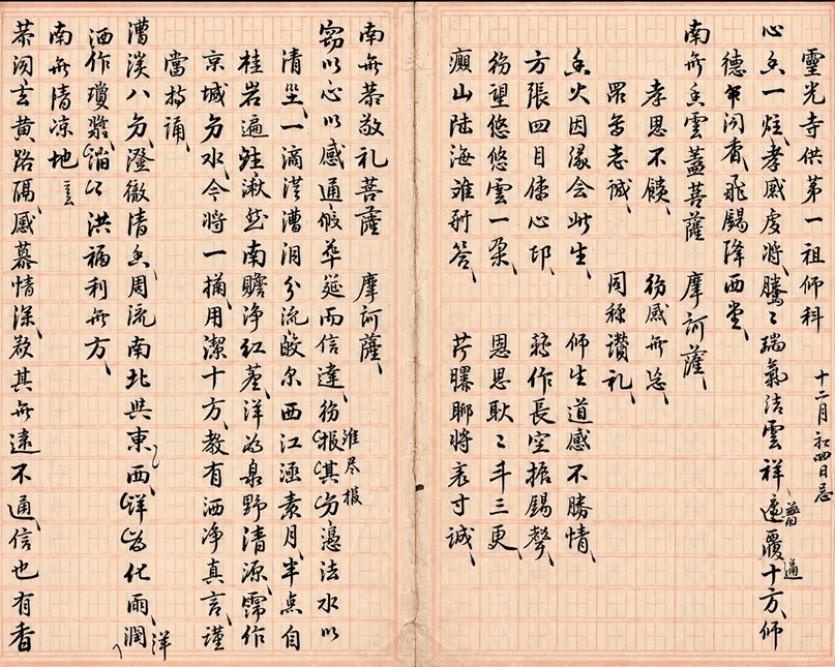 靈光寺供第一祖师科 十二月初四日忌
心香一炷、孝感虔將、騰〻瑞氣洁雲祥、遥覆十方、师
普 遍
德闻香、飛錫降西堂、
南無香雲蓋菩薩 摩訶薩、
孝思不 物感無
眾等志誠、 同称讃礼、
香火因缘会此生、 师生道感不勝情、
方張四目倾心印、 作長空振錫聲、
物望悠悠雲一朵、 恩思耿〻斗三更、
山陆海誰酬答、 片聊將表寸誠、
南無恭敬礼菩薩 摩訶薩、
窃以心以感通、假華筵而信達、物报其分憑法水以
惟尽報
清塵、一滴漕泪分流尔西江涵素月、半点自
桂岩遍南贍净红塵、洋为泉野清源、霈作
京城分水、今將一掬、用潔十方、教有洒净真言、謹
當持誦、
漕溪八分、澄徹清香、周流南北與東西、洋为化雨、潤
洋
洒作瓊漿、消災洪福利無方、
南無清凉地 三
恭闻玄黄路隔、感慕情深、欲其無遠不通、信也有香